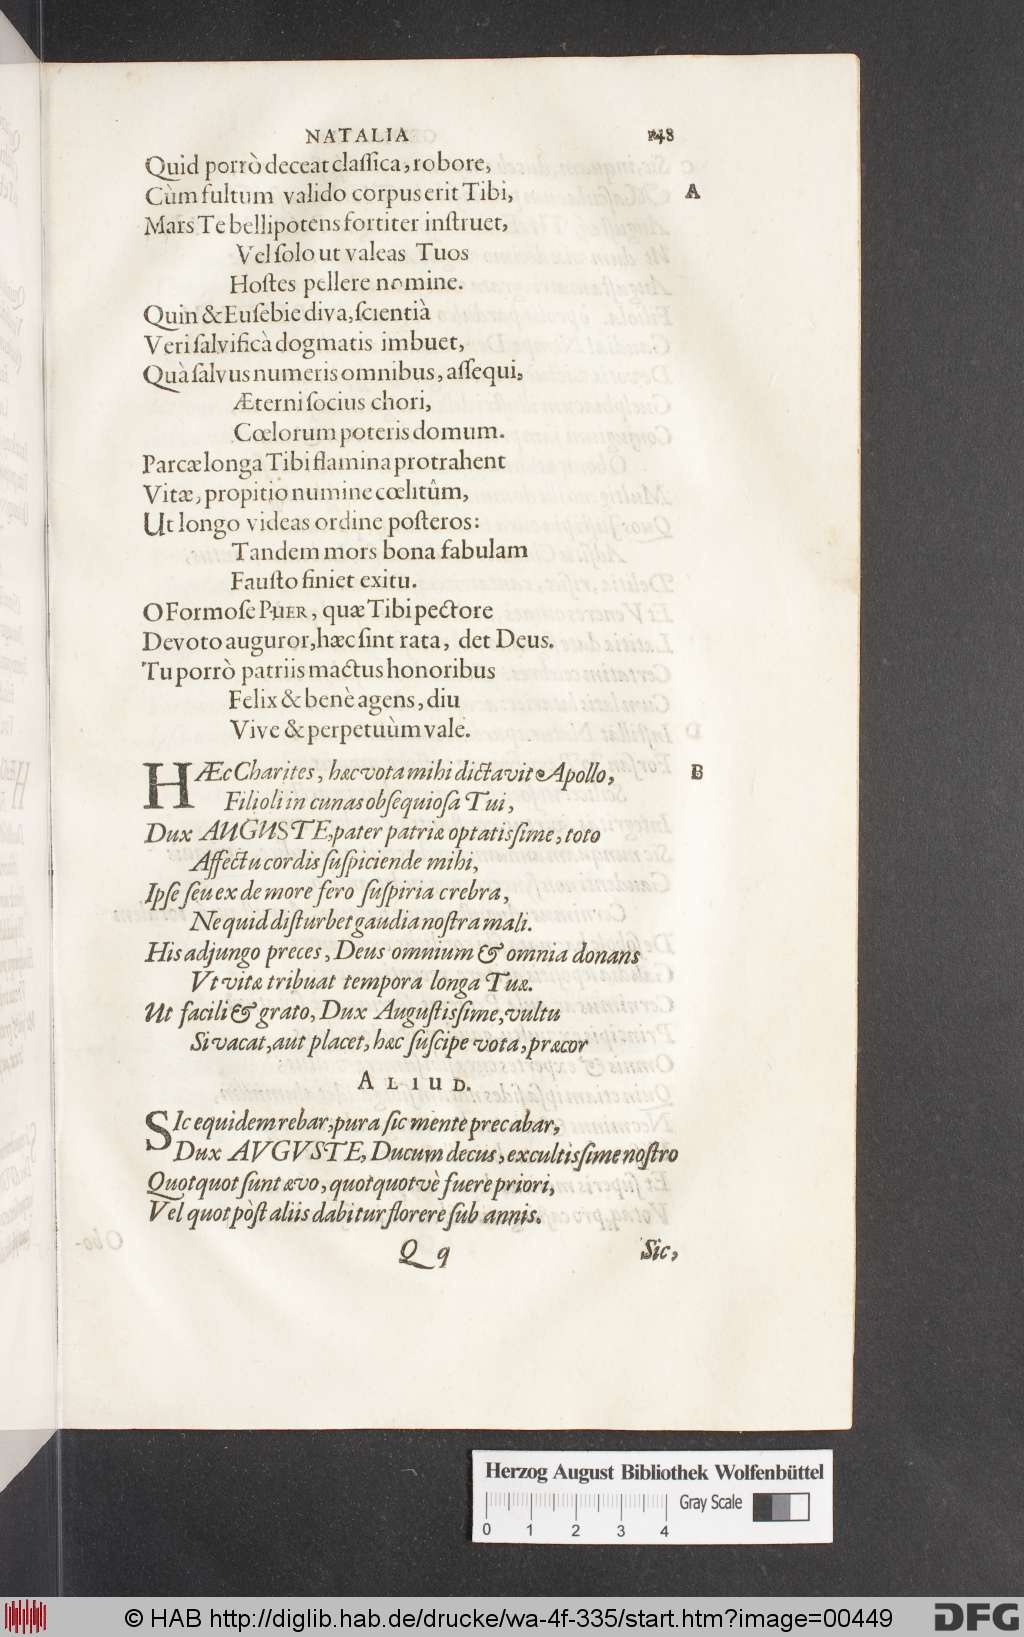 NATALIA
Quid porrò deceat classica, robore,
Cùm fultum valido corpus erit Tibi,
A
Mars Te bellipotens fortiter instruet,
Vel solo ut valeas Tuos
Hostes pellere nomine.
Quin & Eusebie diva, scientià
Veri salvificà dogmatis imbuet,
Quà salvus numeris omnibus, assequi,
Æterni socius chori,
Cœlorum poteris domum.
Parcæ longa Tibi flamina protrahent
Vitæ, propitio numine cœlitûm,
Ut longo videas ordine posteros:
Tandem mors bona fabulam
Fausto finiet exitu.
O Formose PUER, quæ Tibi pectore
Devoto auguror, hæc sint rata, det Deus.
Tu porrò patriis mactus honoribus
Felix & benè agens, diu
Vive & perpetuùm vale.
HÆc Charites, hæc vota mihi dictavit Apollo,
B
Filioli in cunas obsequiosa Tui,
Dux AUGUSTE, pater patriæ optatissime, toto
Affectu cordis suspiciende mihi,
Ipse seu ex de more fero suspiria crebra,
Ne quid disturbet gaudia nostra mali.
His adjungo preces, Deus omnium & omnia donans
Vt vitæ tribuat tempora longa Tuæ.
Ut facili & grato, Dux Augustissime, vultu
Si vacat, aut placet, hæc suscipe vota, præcor
ALIUD.
SIc equidem rebar, pura sic mente precabar,
Dux AVGVSTE, Ducum decus, excultissime nostro
Quotquot sunt ævo, quotquotvè fuere priori,
Vel quot pòst aliis dabitur florere sub annis.
Qq
Sic,
Herzog August Bibliothek Wolfenbüttel
Gray Scale
0 1 2 3 4
© HAB http://diglib.hab.de/drucke/wa-4f-335/start.htm?image=00449
DFG